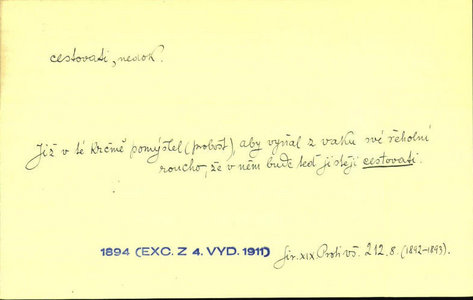 cestovati, nedok.
Již v té krčmě pomýšlel (probošt), aby vyňal z vaku své řeholní
roucho, že v něm bude teď jistěji cestovati.
1894 (EXC. Z 4. VYD. 1911)
Jir. XIX Proti vš. 212. 8. (1892-1893).